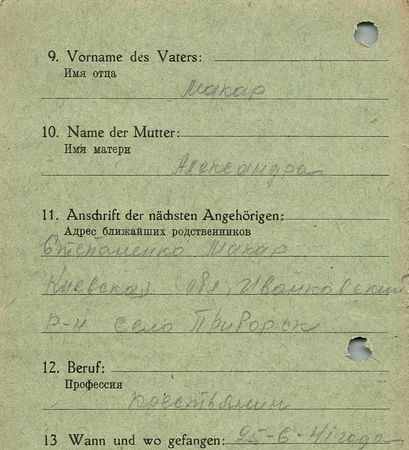 9. Vorname des Vaters:
Имя отца
Макар
10. Name der Mutter:
Имя матери
Александра
11. Anschrift der nächsten Angehörigen:
Адрес ближайших родственников
Степаненко Макар
Киевская обл, Иванковский
р-н село Приборск
12. Beruf:
Профессия
крестьянин
13 Wann und wo gefangen: 25-6-41 года